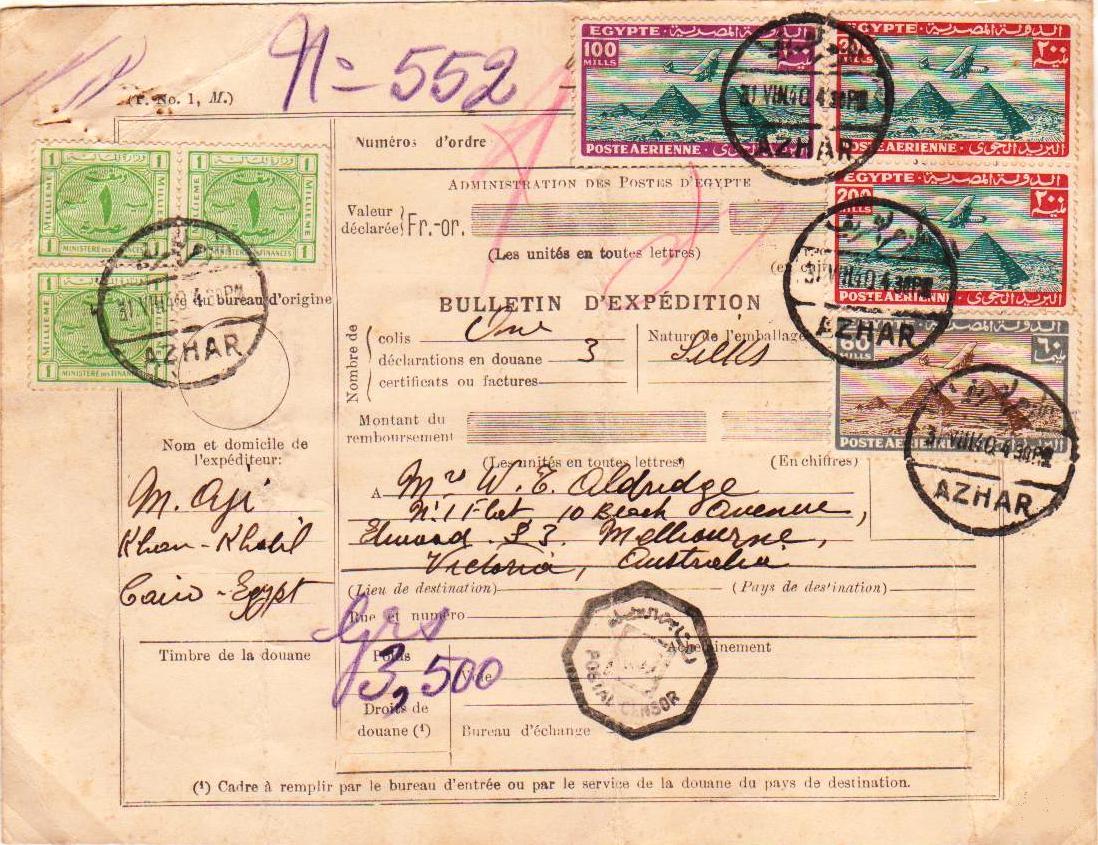 N= 552
(P. No. 1, M.)
EGYPTE الدولة المصرية
100 MILLS
POSTE AERIENNE البريد الجوى
EGYPTE الدولة المصرية
200 MILLS ٢٠٠ مليم
POSTE AERIENNE البريد الجوى
31 VIII 40. 4 30PM
AZHAR
Numéros d'ordre
ADMINISTRATION DES POSTES D'EGYPTE
1 1
MILLIEME
MINISTERE DES FINANCES
1 1
MILLIEME
MINISTERE DES FINANCES
1
MILLIEME
MINISTERE DES FINANCES
31 VIII 40 4 30PM
AZHAR
du bureau d'origine
Valeur déclarée Fr.-or.
(Les unités en toutes lettres)
EGYPTE الدولة المصرية
200 MILLS ٢٠٠ مليم
POSTE AERIENNE البريد الجوى
31 VIII 40. 4 30PM
AZHAR
BULLETIN D'EXPÉDITION
Nombre de
colis One
déclarations en douane 3
certificats ou factures
Nature de l'emballage
Silks
60 MILLS ٦٠
POSTE AERIENNE
31 VIII 40. 4 30PM
AZHAR
Montant du remboursement
(Les unités en toutes lettres) (En chiffres)
Nom et domicile de
l'expéditeur:
M. Agi
Khan-Khalil
Cairo - Egypt
A Mr W. E. Aldridge
No. 1 Flat 10 Beach Avenue,
Elwood S3. Melbourne,
Victoria, Australia
(Lieu de destination) (Pays de destination)
Rue et numéro
Grs
3,500
Timbre de la douane
Poids
Acheminement
POSTAL CENSOR
Droits de
douane (1)
Bureau d'échange
(1) Cadre à remplir par le bureau d'entrée ou par le service de la douane du pays de destination.